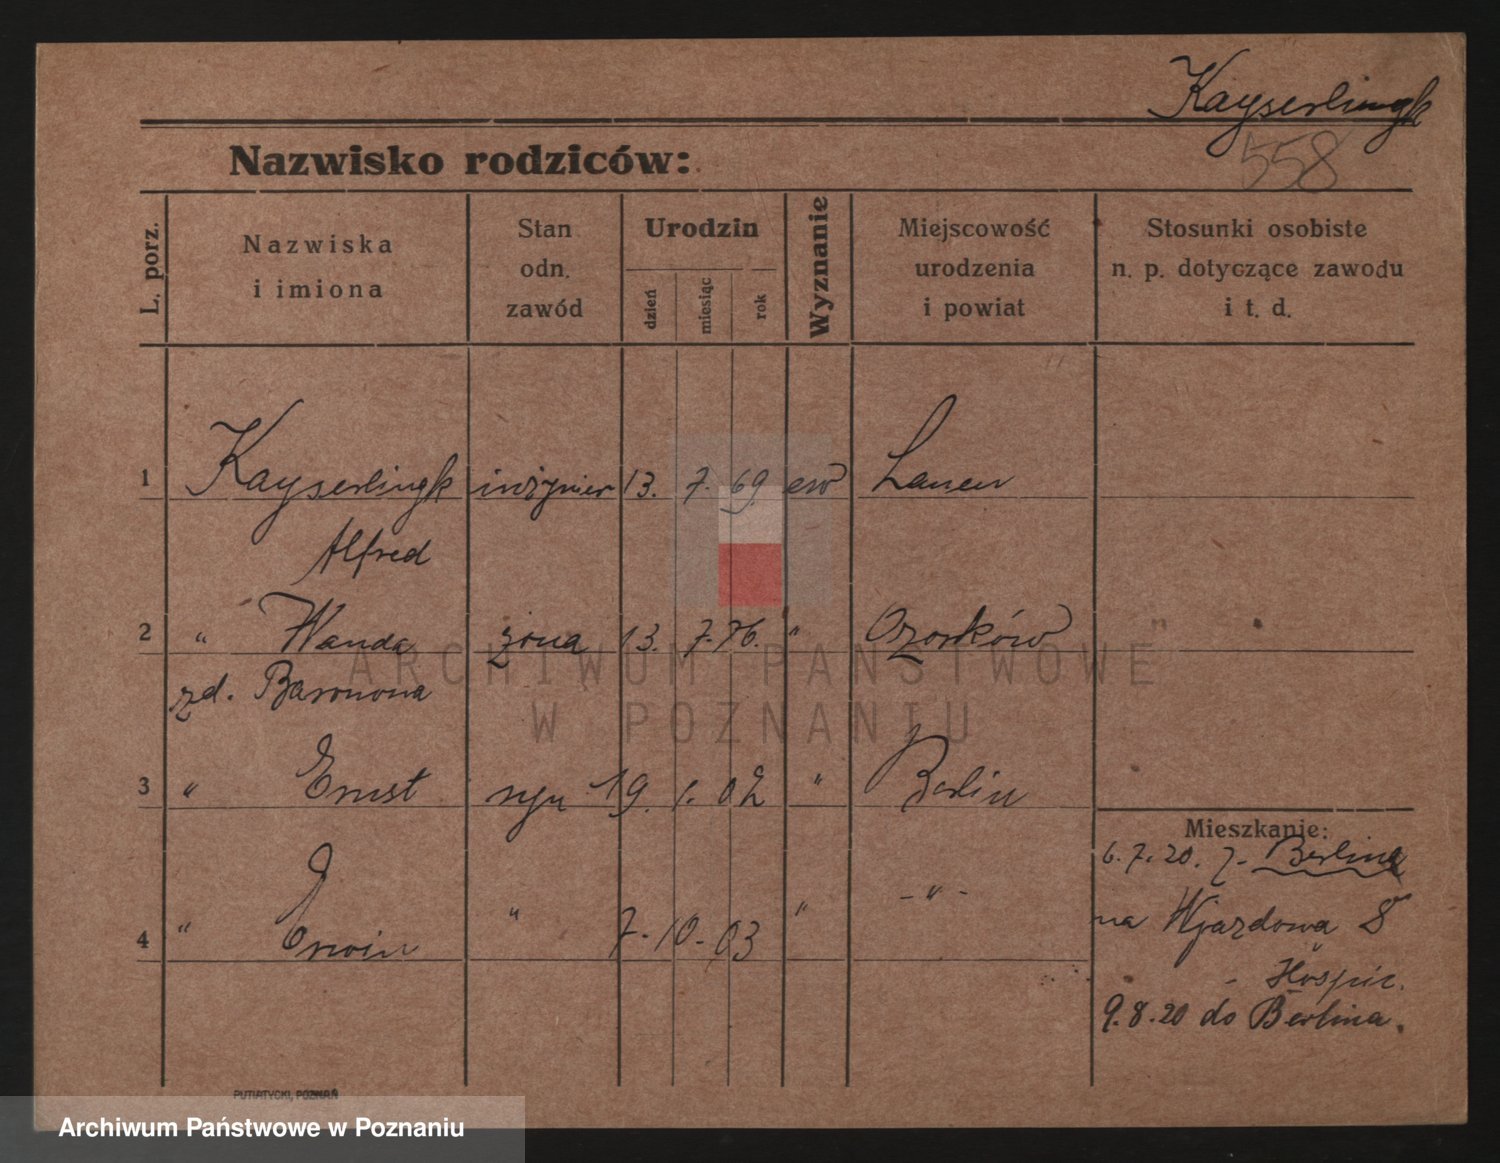 Kayserlingk
558
Nazwisko rodziców:
L. porz.
Nazwiska
i imiona
Stan
odn.
zawód
Urodzin
dzień
miesiąc
rok
Wyznanie
Miejscowość
urodzenia
i powiat
Stosunki osobiste
n. p. dotyczące zawodu
i t. d.
1 Kayserlingk inżynier 13. 7. 69. ew
Alfred
2 " Wanda żona 13. 7. 76. " Ozorków
zd. Baronona
3 " Ernst syn 19. 1. 02 " Berlin
4 " Erwin " 7. 10. 03 " - " -
Mieszkanie:
6. 7. 20. z. Berlina
na Wjazdowa 8
- Hospic.
9. 8. 20 do Berlina.
PUTIATYCKI, POZNAŃ
ARCHIWUM PAŃSTWOWE
W POZNANIU
Archiwum Państwowe w Poznaniu